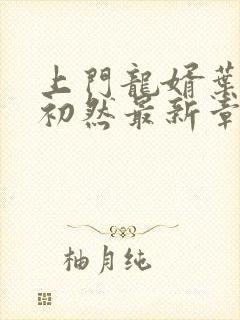 上門龍婿葉
初然最新章
柚月纯